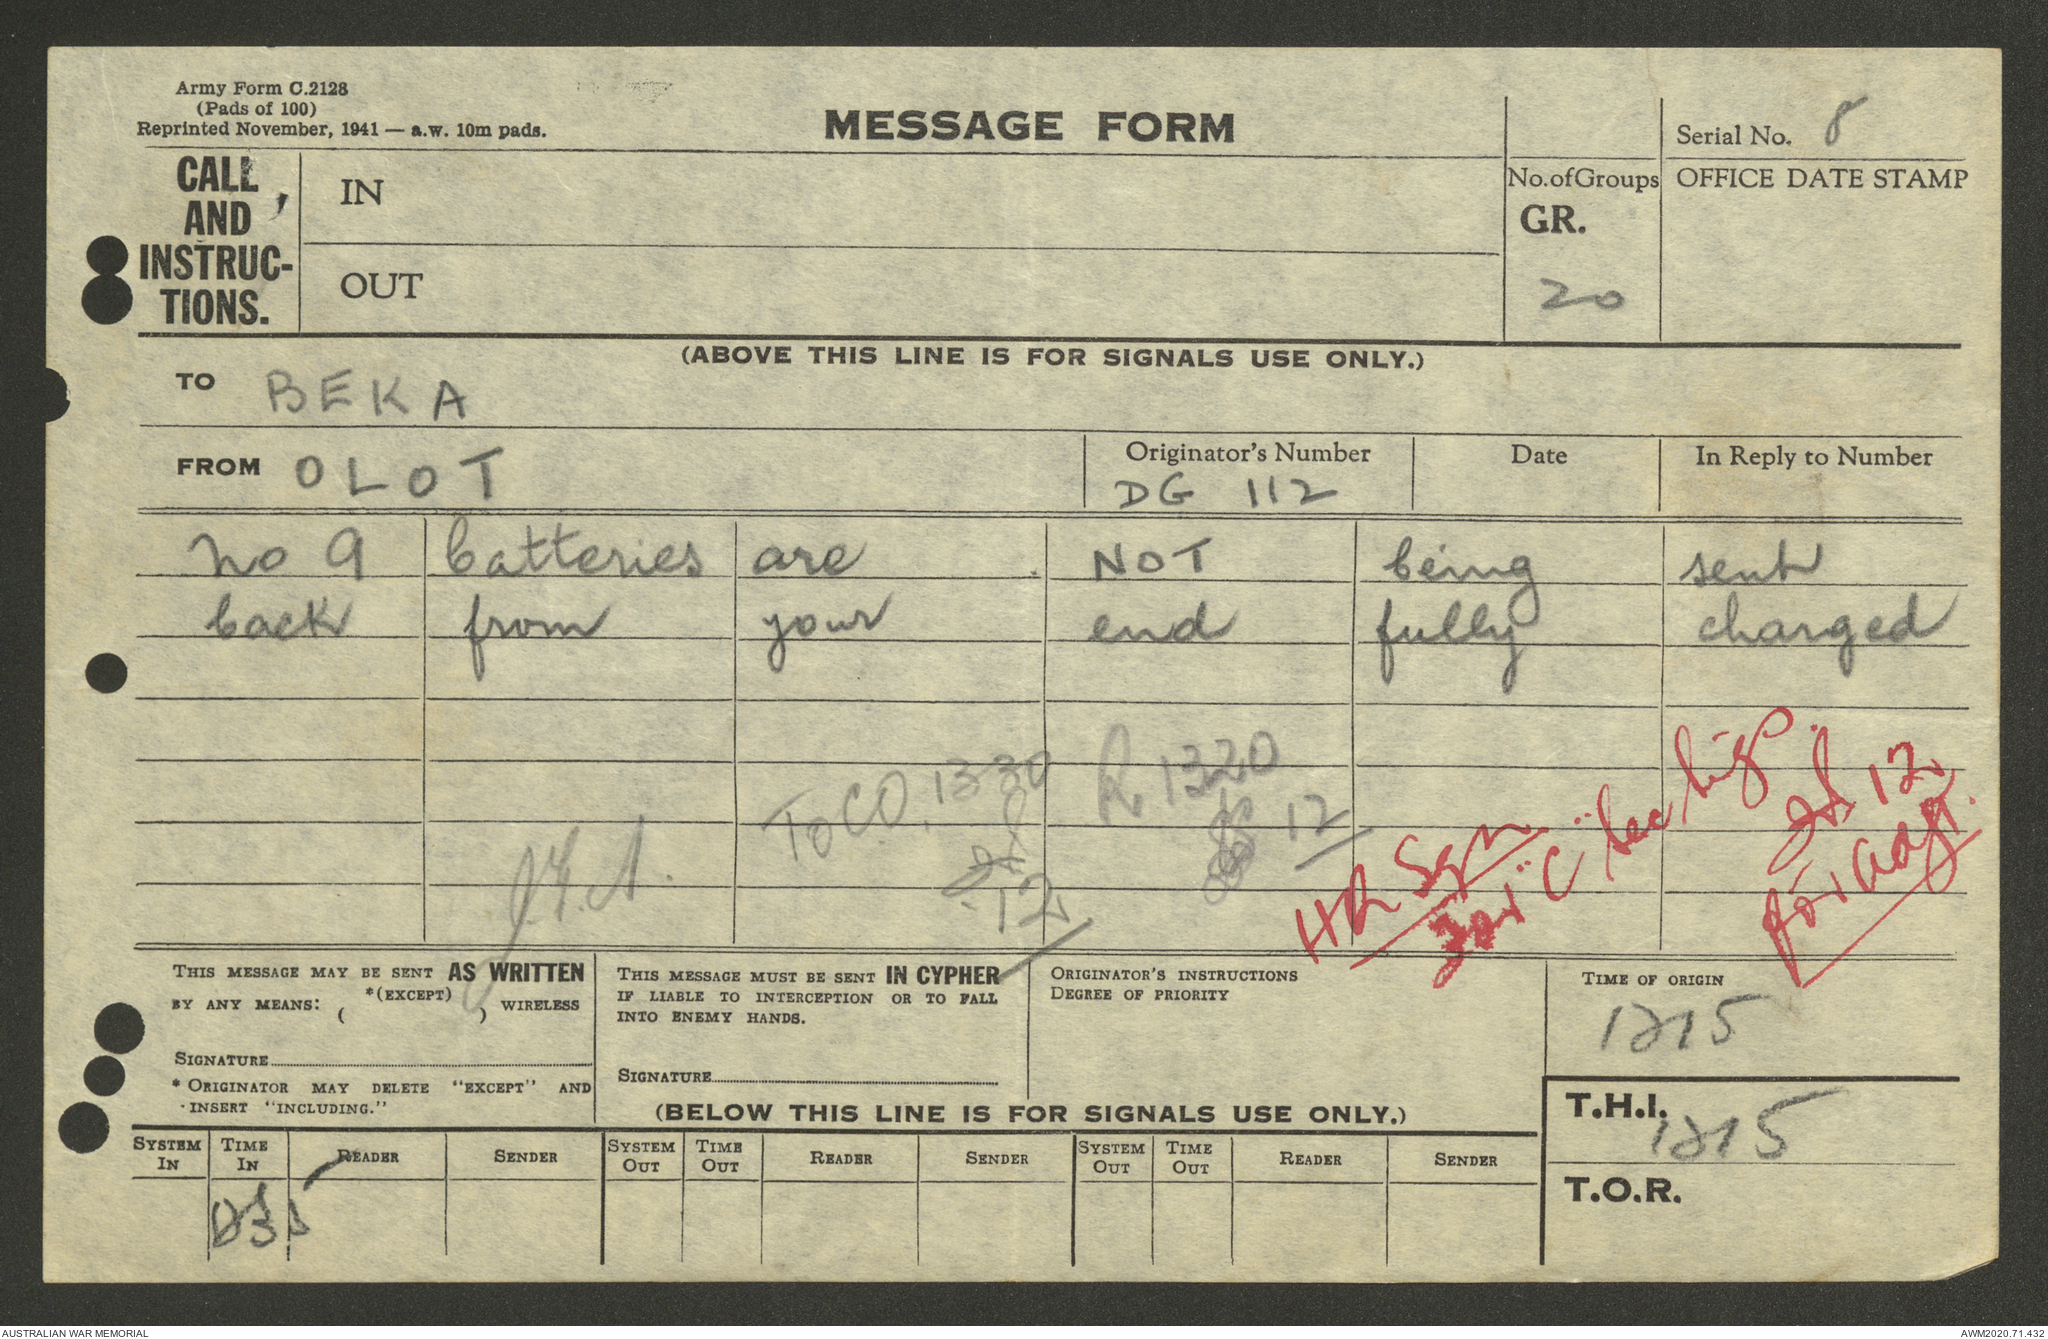 Army Form C.2128
(Pads of 100)
Reprinted November, 1941 — a.w. 10m pads.
MESSAGE FORM
Serial No. 8
CALL AND INSTRUC-TIONS.
IN
OUT
No. of Groups
GR.
20
OFFICE DATE STAMP
(ABOVE THIS LINE IS FOR SIGNALS USE ONLY.)
TO BEKA
FROM OLOT
Originator's Number
DG 112
Date
In Reply to Number
No 9 batteries are NOT being sent
back from your end fully charged
To CO, 1330
12
R 1320
12
HQ Sgn
12
for Adjt.
THIS MESSAGE MAY BE SENT AS WRITTEN
BY ANY MEANS: ( *(EXCEPT) ) WIRELESS
SIGNATURE
* ORIGINATOR MAY DELETE "EXCEPT" AND
INSERT "INCLUDING."
THIS MESSAGE MUST BE SENT IN CYPHER
IF LIABLE TO INTERCEPTION OR TO FALL
INTO ENEMY HANDS.
SIGNATURE
ORIGINATOR'S INSTRUCTIONS
DEGREE OF PRIORITY
TIME OF ORIGIN
1215
(BELOW THIS LINE IS FOR SIGNALS USE ONLY.)
T.H.I. 1215
T.O.R.
SYSTEM IN TIME IN READER SENDER SYSTEM OUT TIME OUT READER SENDER SYSTEM OUT TIME OUT READER SENDER
AUSTRALIAN WAR MEMORIAL
AWM2020.71.432